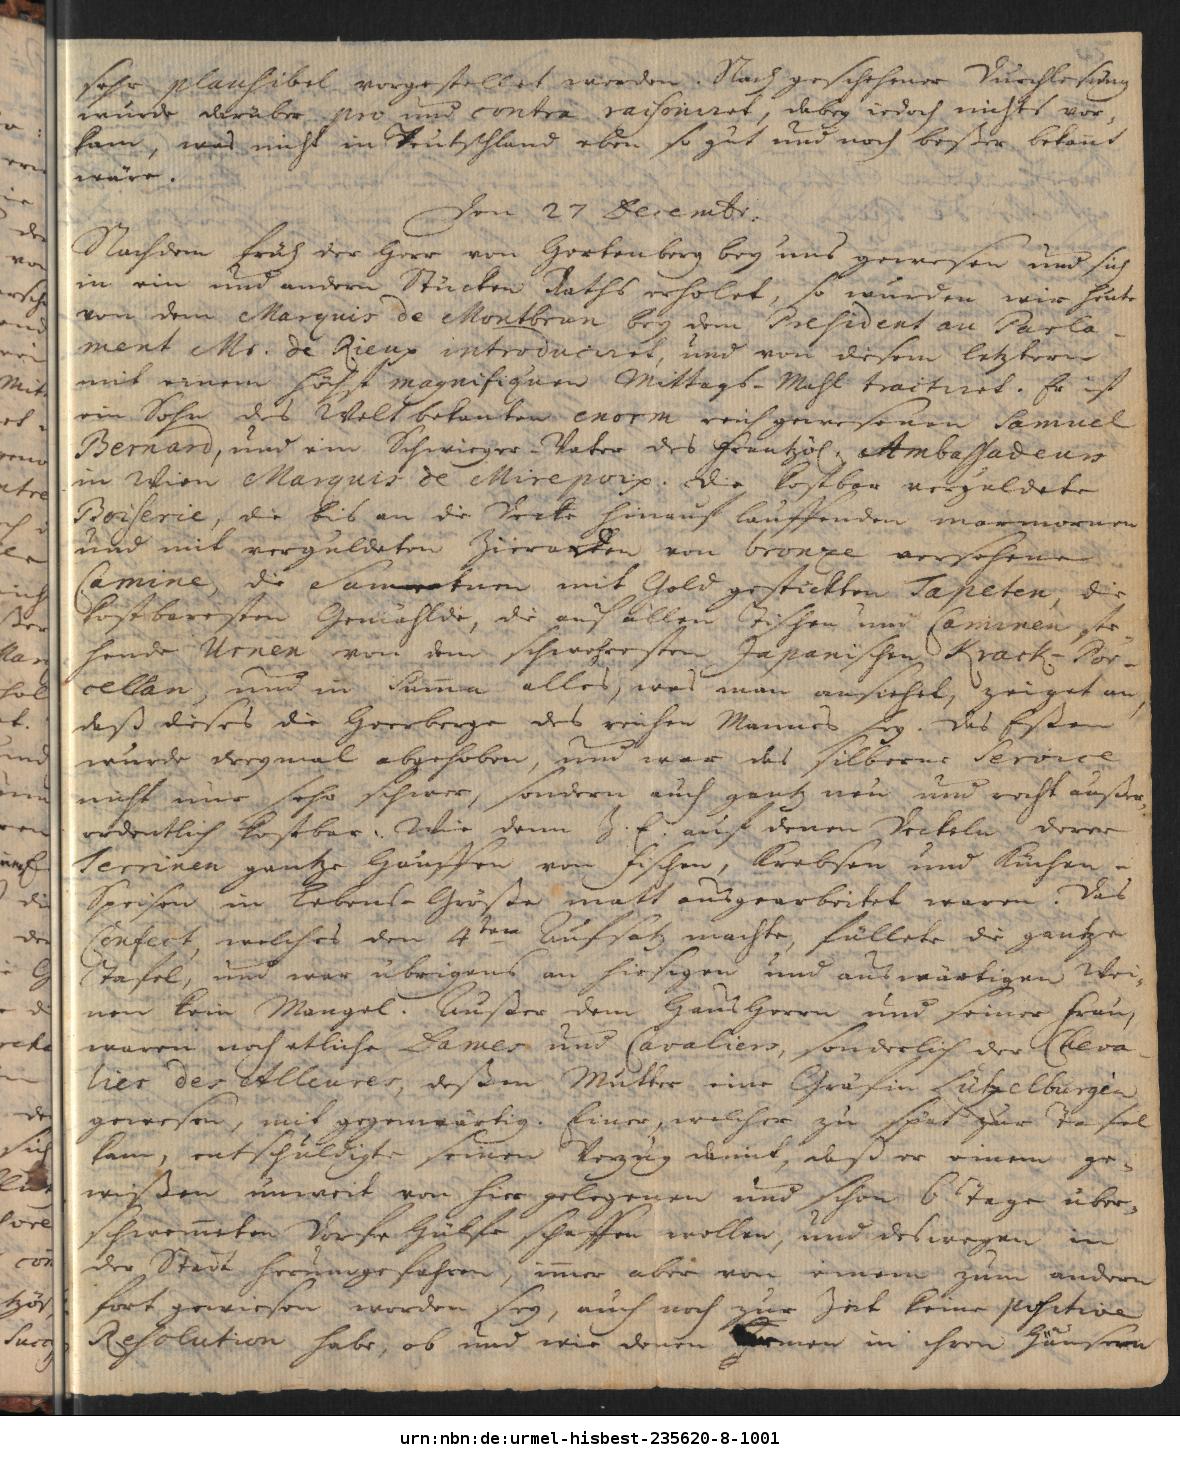 sehr plausibel vorgestellet worden. Nach geschehener Durchlesung
wurde darüber pro und contra raisoniret, dabey iedoch nichts vor-
kam, was nicht in Teutschland eben so gut und noch beßer bekañt
wäre.
Den 27 Decembr.
Nachdem früh der Herr von Gortenberg bey uns gewesen und sich
in ein und andern Stücken Raths erholet, so wurden wir heute
von dem Marquis de Montbrun bey dem President au Parla-
ment Mr. de Rieux introduciret, und von diesem letztern
mit einem höchst magnifiquen Mittags-Mahl tractiret. Er ist
ein Sohn des Weltbekanten enorm reich gewesenen Samuel
Bernard, und ein Schwieger-Vater des Frantzös. Ambassadeurs
in Wien Marquis de Mirepoix. Die kostbar verguldete
Boiserie, die bis an die Decke hinauf lauffenden marmornen
und mit verguldeten Zierathen von bronze versehene
Camine, die Sammtnen mit Gold gestickten Tapeten, die
kostbaresten Gemählde, die auf allen Tischen und Caminen ste-
hende Urnen von dem schwehresten Japanischen Krack-Por-
cellan, und in Suma alles, was man ansiehet, zeiget an,
daß dieses die Herberge des reichen Mannes sey. Das Eßen
wurde dreymal abgehoben, und war das silberne Service
nicht nur sehr schwer, sondern auch gantz neu und recht außer-
ordentlich kostbar. Wie denn z. E. auf denen Deckeln derer
Terrinen gantze Hauffen von Fischen, Krebsen und Küchen-
Speisen in Lebens-Größe matt ausgearbeitet waren. Das
Confect, welches den 4ten Aufsatz machte, füllete die gantze
Tafel, und war übrigens an hiesigen und auswärtigen Wei-
nen kein Mangel. Außer dem HausHerrn und seiner Frau,
waren noch etliche Dames und Cavaliers, sonderlich der Cheva-
lier des Alleures, deßen Mutter eine Gräfin Lützelburgin
gewesen, mit gegenwärtig. Einer, welcher zu spät zur Tafel
kam, entschuldigte seinen Verzug damit, daß er einem ge-
wißen unweit von hier gelegenen und schon 6 Tage über-
schwemten Dorfe Hülfe schaffen wollen, und deswegen in
der Stadt herumgefahren, imer aber von einem zum andern
fort gewiesen worden sey, auch noch zur Zeit keine positive
Resolution habe, ob und wie denen Armen in ihren Häusern